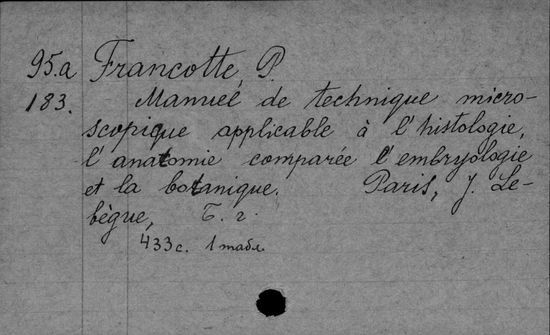 95.a Francotte, P.
183. Manuel de technique micro-
scopique applicable à l'histologie,
l'anatomie comparée l'embryologie
et la botanique. Paris, J. Le-
bègue, Б. г.
433 с. 1 табл.